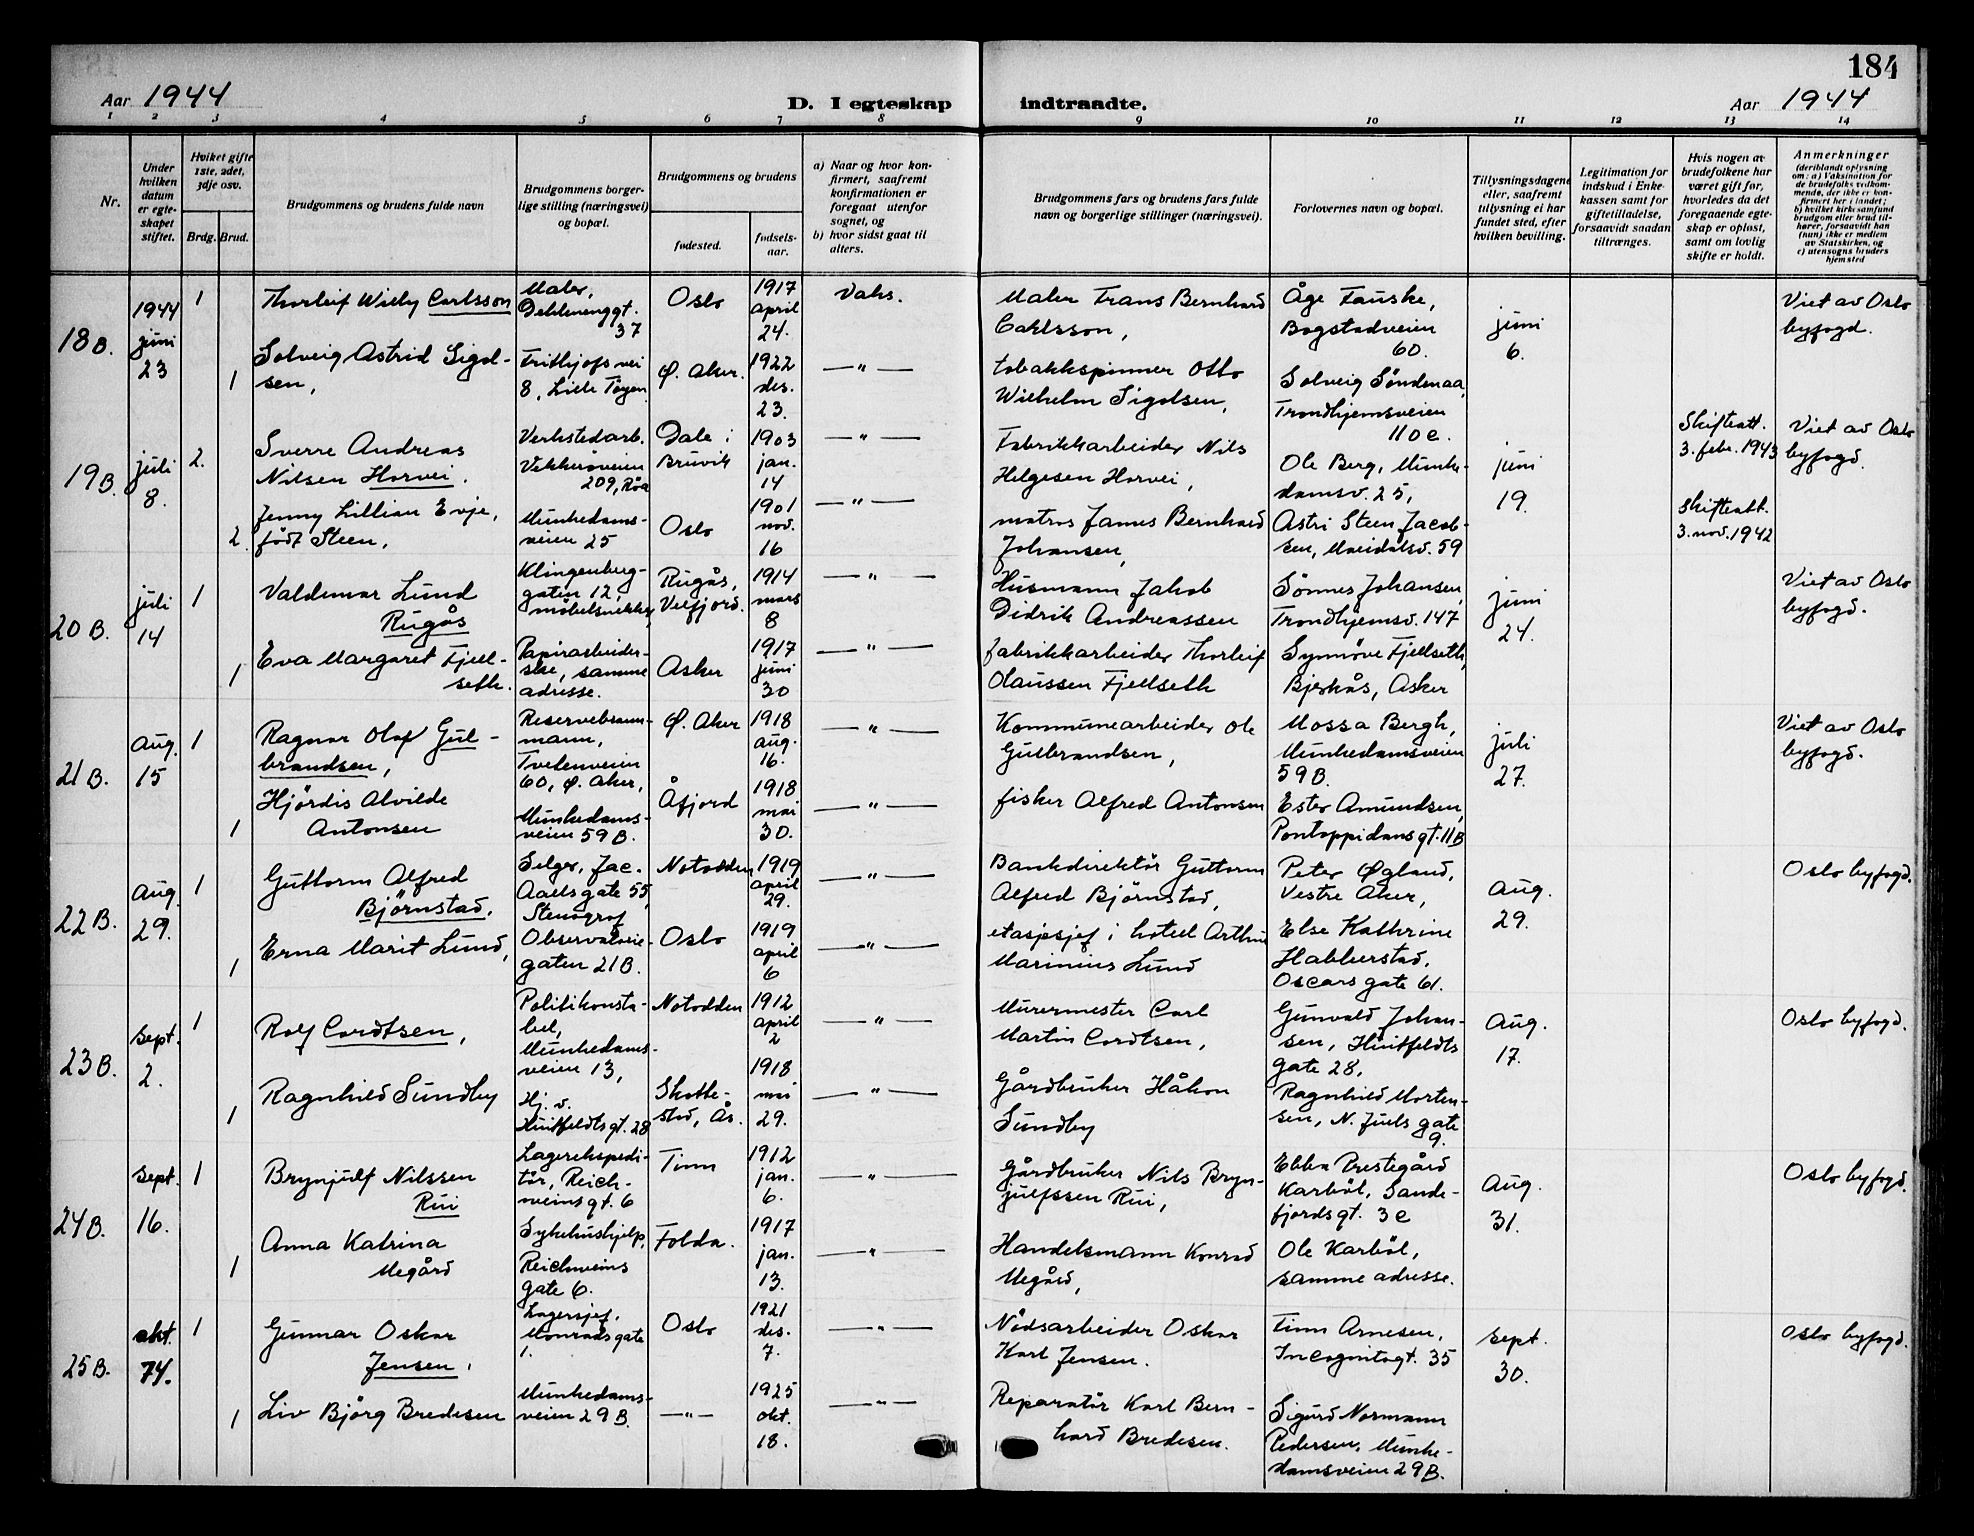 184
Aar 1944
D. I egteskap indtraadte.
Aar 1944
1 2 3 4 5 6 7 8 9 10 11 12 13 14
Nr.
Under hvilken datum er egteskapet stiftet.
Hvilket gifte 1ste, 2det, 3dje osv.
Brdg. Brud.
Brudgommens og brudens fulde navn
Brudgommens borgerlige stilling (næringsvei) og bopæl.
Brudgommens og brudens
fødested.
fødselsaar.
a) Naar og hvor konfirmert, saafremt konfirmationen er foregaat utenfor sognet, og
b) hvor sidst gaat til alters.
Brudgommens fars og brudens fars fulde navn og borgerlige stillinger (næringsvei).
Forlovernes navn og bopæl.
Tillysningsdagene eller, saafremt tillysning ei har fundet sted, efter hvilken bevilling.
Legitimation for indskud i Enkekassen samt for giftetilladelse, forsaavidt saadan tiltrænges.
Hvis nogen av brudefolkene har været gift før, hvorledes da det foregaaende egteskap er opløst, samt om lovlig skifte er holdt.
Anmerkninger
(deriblandt oplysning om: a) Vaksination for de brudefolks vedkommende, der ikke er konfirmert her i landet;
b) hvilket kirkesamfund brudgom eller brud tilhører, forsaavidt han (hun) ikke er medlem av Statskirken, og
c) utensogns bruders hjemsted
18B. 1944 juni 23 1
Thorleif Willy Carlsson
Maler,
Dehlenenggt.
37
Oslo
1917 april 24.
Vahs.
Maler Frans Bernhard
Carlsson,
Åge Fauske,
Bogstadveien
60.
juni
6.
Viet av Oslo
byfogd.
1
Solveig Astrid Sigol-
sen,
Frithjofs vei
8, Lille Tøyen
Ø. Aker.
1922 des. 23.
— " —
tobakkspinner Otto
Wilhelm Sigolsen,
Solveig Søndenaa,
Trondhjemsveien
110 c.
19B. juli 8. 2.
Sverre Andreas
Nilsen Horvei.
Verkstedarb.
Vækkerøveien
209, Røa
Dale i
Bruvik
1903 jan. 14
— " —
Fabrikkarbeider Nils
Helgesen Horvei,
Ole Berg, Munke-
damsv. 25,
juni
19.
Skifteatt.
3. febr. 1943
Viet av Oslo
byfogd.
2.
Jenny Lillian Evje,
født Steen,
Munkedams-
veien 25
Oslo
1901 nov. 16
— " —
matros James Bernhard
Johansen,
Astri Steen Jacob-
sen, Maridalsv. 59
Skifteatt.
3. nov. 1942
20B. juli 14 1
Valdemar Lund
Rugås
Klingenberg-
gaten 12,
møbelsnekker,
Rugås,
Velfjord.
1914 mars 8
— " —
Husmann Jakob
Didrik Andreassen
Sønnes Johansen,
Trondhjemsv. 147
juni
24.
Viet av Oslo
byfogd.
1
Eva Margaret Fjell-
seth.
Papirarbeider-
ske, samme
adresse.
Asker
1917 juni 30
— " —
fabrikkarbeider Thorleif
Olaussen Fjellseth
Synnøve Fjellseth,
Bjerkås, Asker
21B. Aug. 15 1
Ragnar Olaf Gul-
brandsen,
Reservebrann-
mann,
Tvetenveien
60, Ø. Aker,
Ø. Aker
1918 aug. 16.
— " —
Kommunearbeider Ole
Gulbrandsen,
Mossa Bergh,
Munkedamsveien
59 B.
juli
27.
Viet av Oslo
byfogd.
1
Hjördis Alvilde
Antonsen
Munkedams-
veien 59 B.
Åfjord
1918 mai 30.
— " —
fisker Alfred Antonsen
Ester Amundsen,
Pontoppidans gt. 11B
22B. Aug. 29. 1
Guttorm Alfred
Björnstad.
Selger, Jac.
Aalls gate 55,
Notodden
1919 april 29.
— " —
Bankdirektör Guttorm
Alfred Bjørnstad,
Peter Øgland,
Vestre Aker,
Aug.
29.
Oslo byfogd.
1
Erna Marit Lund,
Stenograf
Observatorie-
gaten 21B.
Oslo
1919 april 6
— " —
etasjesjef i hotell Arthur
Marinius Lund
Else Kathrine
Habberstad,
Oscars gate 61.
23B. Sept. 2. 1
Rolf Cordtsen,
Politikonsta-
bel,
Munkedams-
veien 13,
Notodden
1912 april 2
— " —
Murermester Carl
Martin Cordtsen,
Gunvald Johan-
sen, Huitfeldts
gate 28,
Aug.
17.
Oslo byfogd.
1
Ragnhild Sundby
Hj. v.
Huitfeldtsgt. 28
Skotte-
stad, Ås.
1918 mai 29.
— " —
Gårdbruker Håkon
Sundby
Ragnhild Morten-
sen, N. Juels gate
9.
24B. Sept. 16. 1
Brynjulf Nilssen
Rui
Lagerekspedi-
tör, Reich-
weinsgt. 6
Tinn
1912 jan. 6.
— " —
Gårdbruker Nils Bryn-
julfssen Rui,
Ebba Prestegård
Karböl, Sande-
fjordsgt. 3 c
Aug.
31.
Oslo byfogd.
1
Anna Katrina
Megård
Sykehushjelp,
Reichweins
gate 6.
Folda.
1917 jan. 13.
— " —
Handelsmann Konrad
Megård,
Ole Karböl,
samme adresse.
25B. okt. 14. 1
Gunnar Oskar
Jensen,
Lagersjef,
Monradsgate
1.
Oslo
1921 des. 7.
— " —
Nödsarbeider Oskar
Karl Jensen.
Finn Arnesen,
Incognitogt. 35
Sept.
30.
Oslo byfogd.
1
Liv Björg Bredesen
Munkedams-
veien 29 B.
— " —
1925 okt. 18.
— " —
Reparatör Karl Bern-
hard Bredesen.
Sigurd Normann
Pedersen, Munke-
damsveien 29 B.